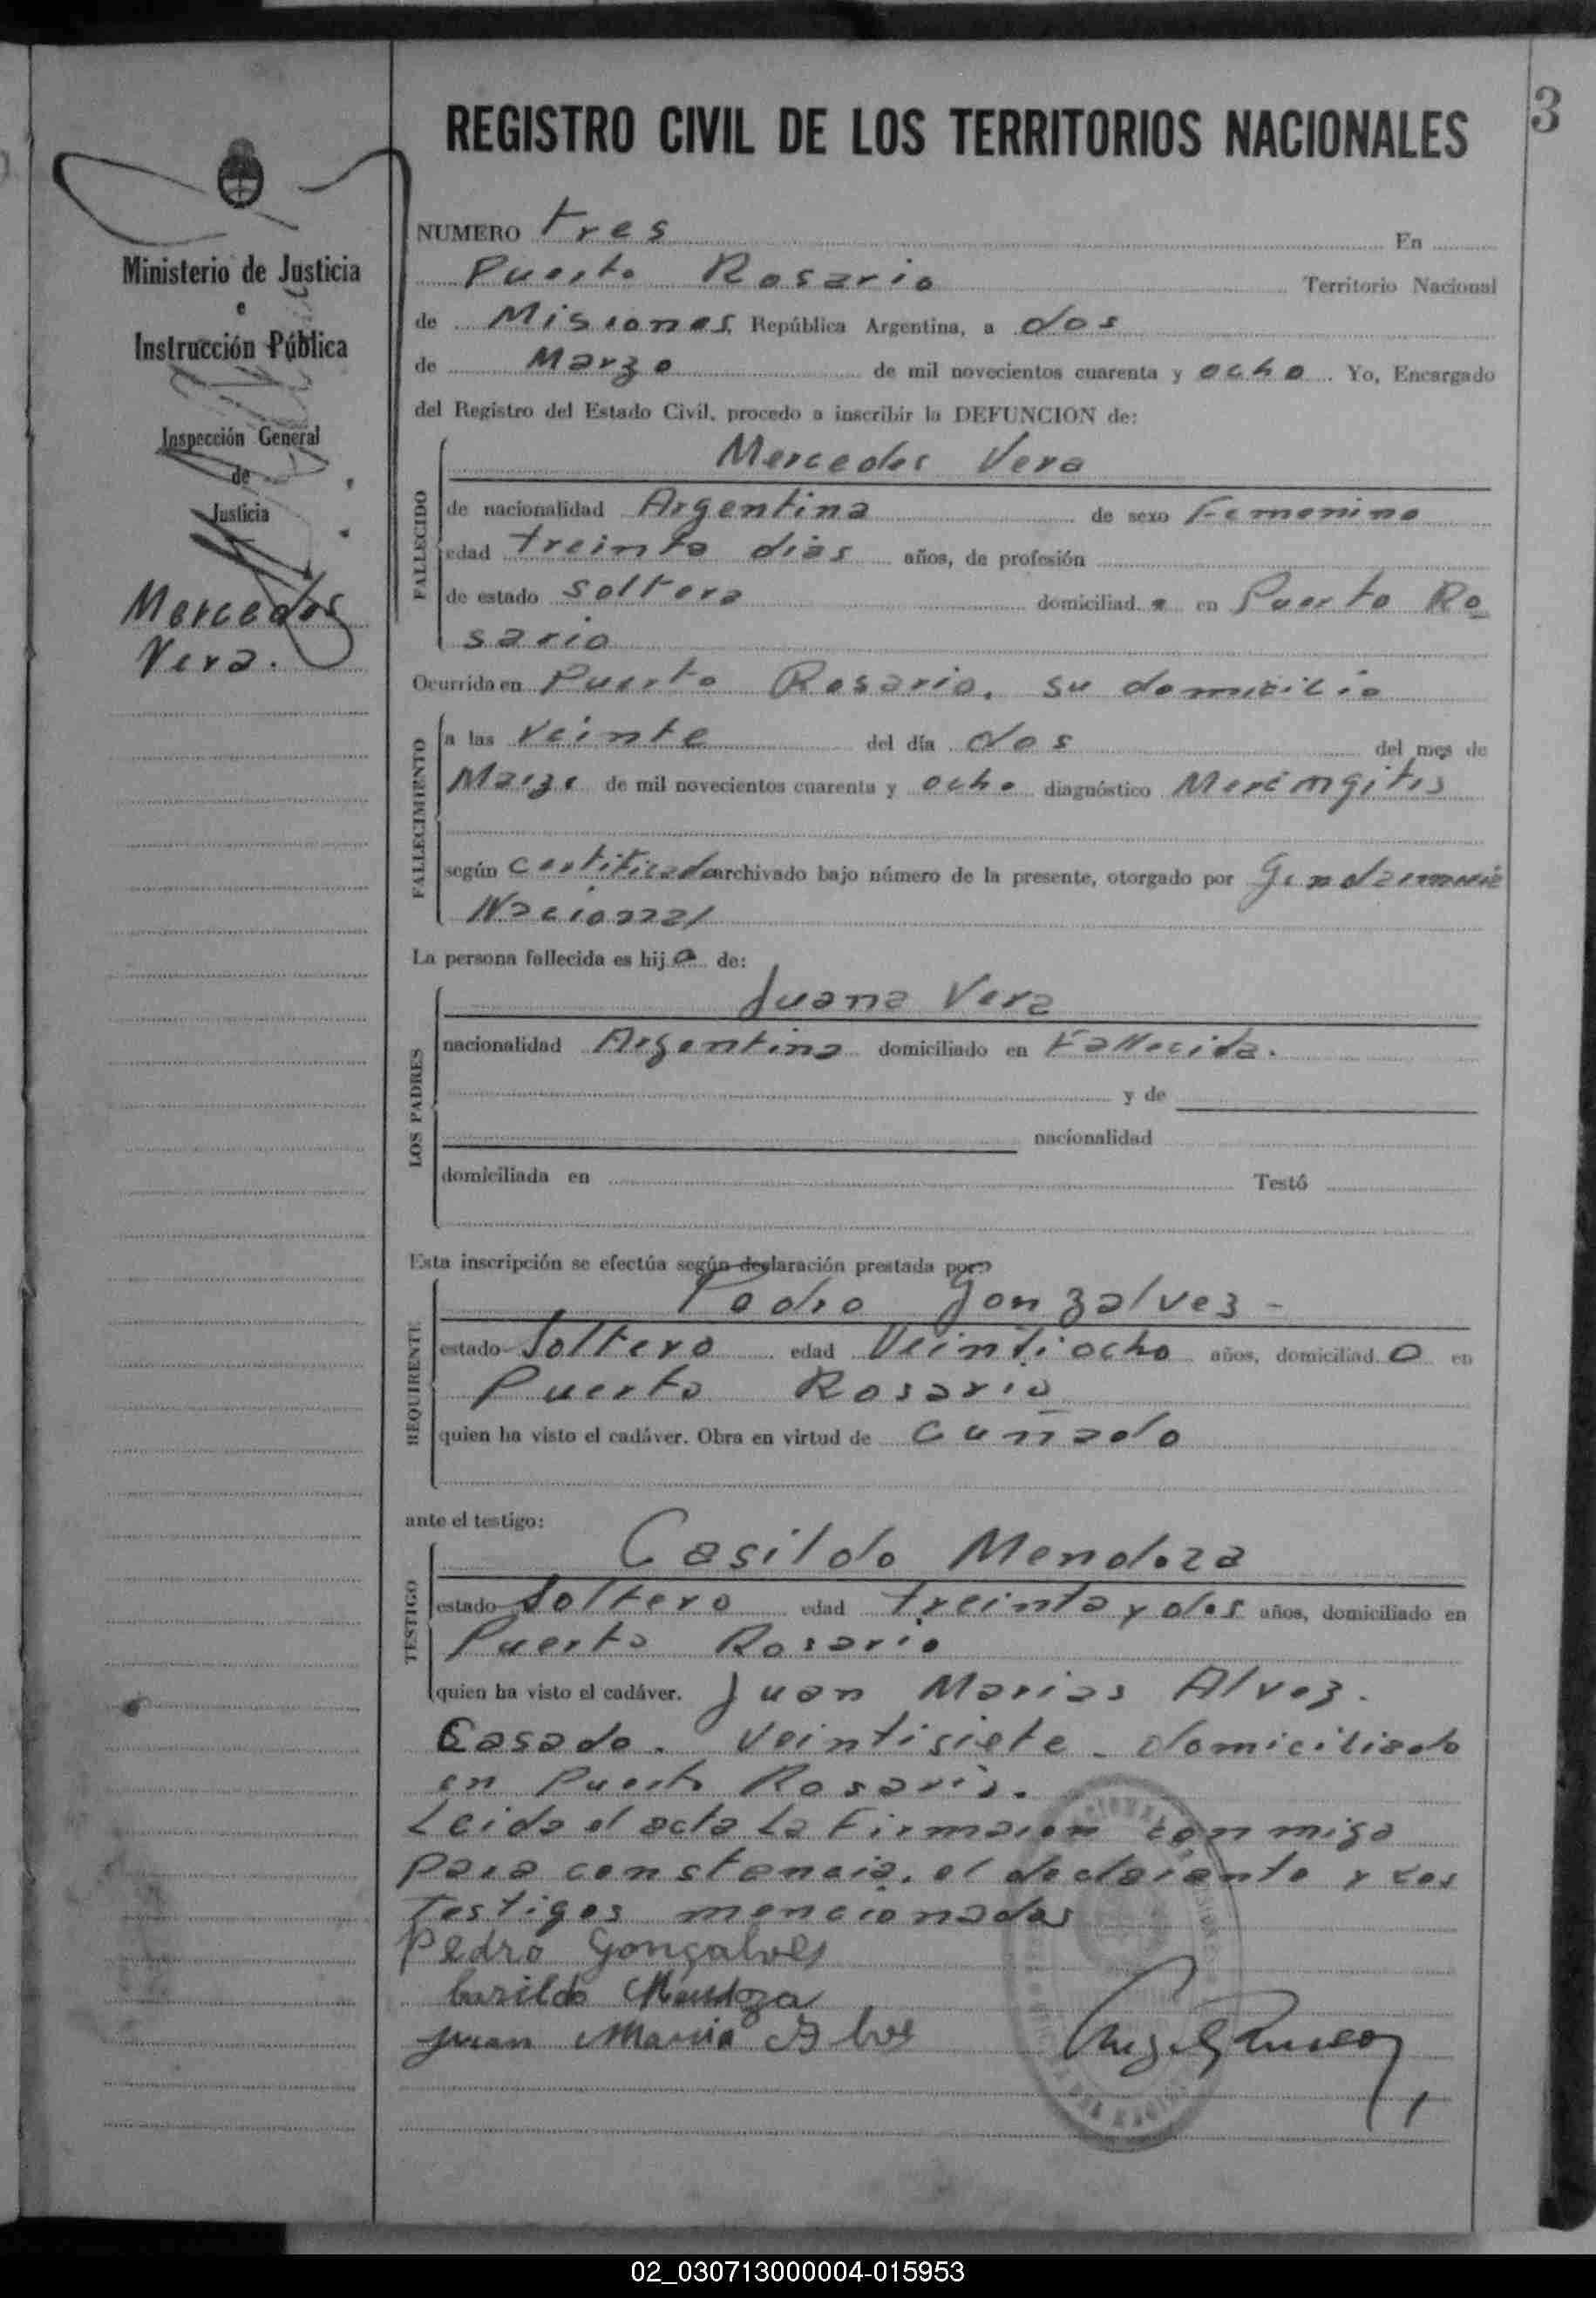 3
REGISTRO CIVIL DE LOS TERRITORIOS NACIONALES
Ministerio de Justicia
e
Instrucción Pública
Inspección General
de
Justicia
Mercedes
Vera.
NUMERO tres En
Puerto Rosario Territorio Nacional
de Misiones República Argentina, a dos
de Marzo de mil novecientos cuarenta y ocho Yo, Encargado
del Registro del Estado Civil, procedo a inscribir la DEFUNCION de:
FALLECIDO
Mercedes Vera
de nacionalidad Argentina de sexo Femenino
edad treinta dias años, de profesión
de estado soltera domiciliad a en Puerto Ro
sario
Ocurrida en Puerto Rosario, su domicilio
FALLECIMIENTO
a las veinte del día dos del mes de
Marzo de mil novecientos cuarenta y ocho diagnóstico
según certificado archivado bajo número de la presente, otorgado por
Nacional
La persona fallecida es hija de:
LOS PADRES
Juana Vera
nacionalidad Argentina domiciliado en Fallecida.
y de
nacionalidad
domiciliada en Testó
Esta inscripción se efectúa según declaración prestada por:
REQUIRENTE
Pedro Gonzalvez -
estado Soltero edad Veintiocho años, domiciliad o en
Puerto Rosario
quien ha visto el cadáver. Obra en virtud de cuñado
ante el testigo:
TESTIGO
Casildo Mendoza
estado Soltero edad treinta y dos años, domiciliado en
Puerto Rosario
quien ha visto el cadáver. Juan Marias Alvez.
Casado. Veintisiete - domiciliado
en Puerto Rosario.
Leida el acta la Firmaron conmigo
para constancia, el declarante y los
testigos mencionados
Pedro Gonçalves
Casildo Mendoza
Juan Maria Alves
02_030713000004-015953